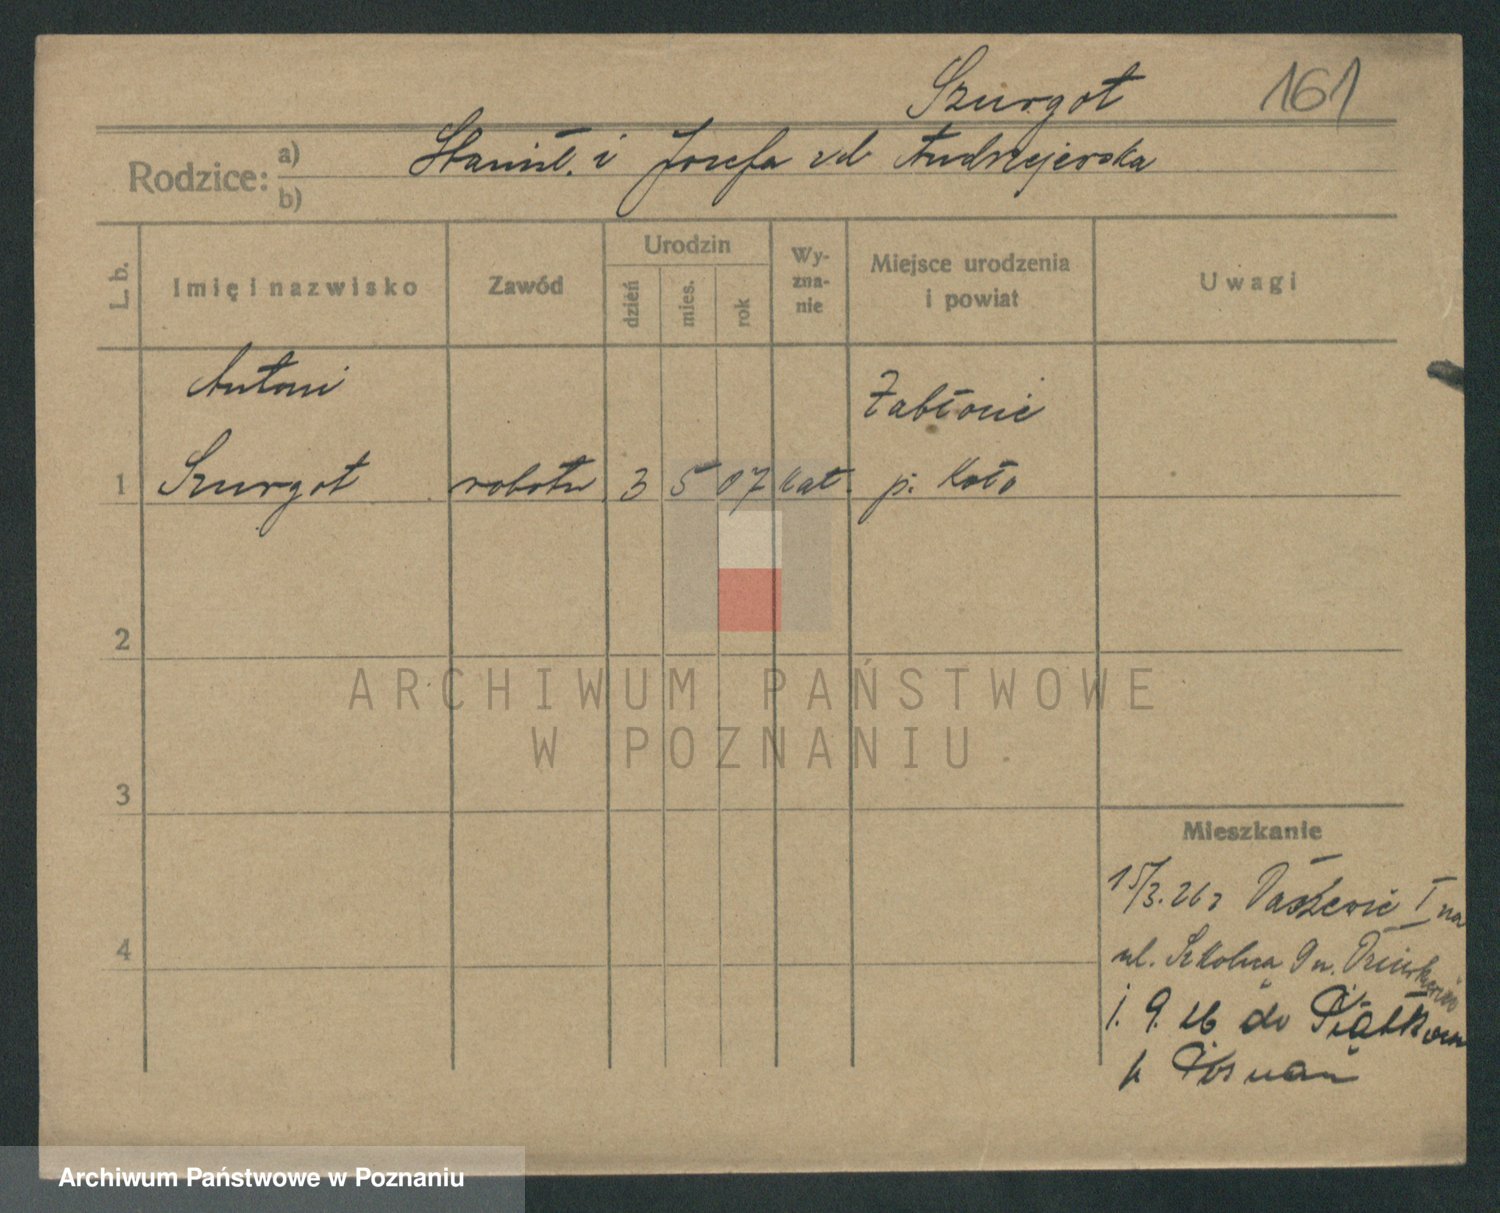 Szurgot
161
Rodzice: a) b)
Stanisł. i Józefa zd Andrzejewska
L. b.
Imię i nazwisko
Zawód
Urodzin
dzień
mies.
rok
Wy-
zna-
nie
Miejsce urodzenia
i powiat
Uwagi
Antoni
Zabłocie
1 Szurgot robotn 3 5 07 kat. p. Koło
2
ARCHIWUM PAŃSTWOWE
W POZNANIU
3
Mieszkanie
15/3. 26 z I na
4
ul. Szkolna 9 u.
1. 9. 26 do Piątkowa
p Poznań
Archiwum Państwowe w Poznaniu